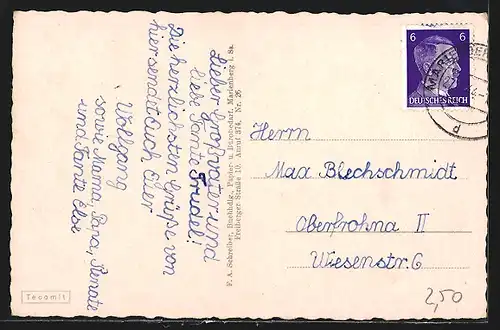 Lieber Großvater und
liebe Tante Trudel!
Die herzlichsten Grüße von
hier sendet Euch Euer
Wolfgang
sowie Mama, Papa, Renate
und Tante Else
F. A. Schreiber, Buchhdlg., Papier- u. Bürobedarf, Marienberg i. Sa.
Freiberger Straße 10. Anruf 374. Nr. 26
6 6
DEUTSCHES REICH
d
Herrn
Max Blechschmidt
Oberfrohna II
Wiesenstr. 6
Tecomit
2,50